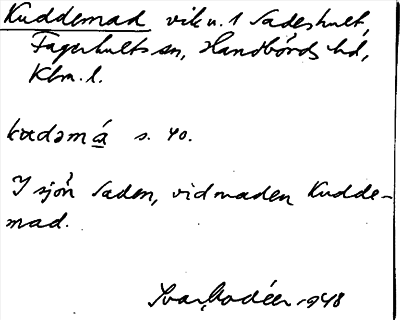 Kuddemad vik u. 1 Sadeshult,
Fagerhults sn, Handbörds hd,
Klm. l.
kɷdəmá s. 40.
I sjön Saden, vid maden Kudde-
mad.
Ivar Modéer 1948